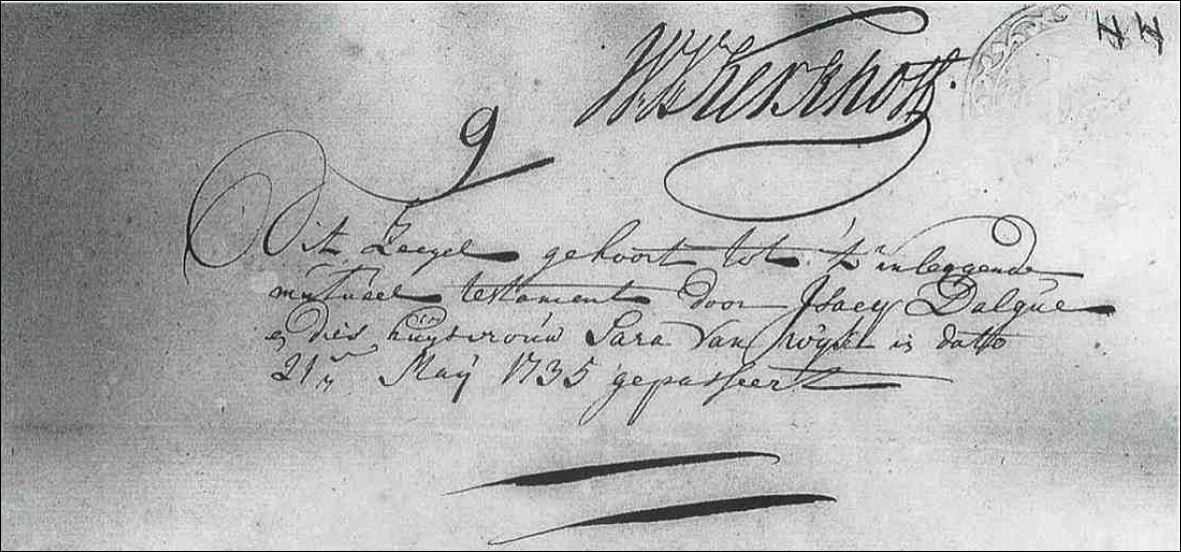 W. V. Kerkhoff.
9
Dit Zeegel gehoort tot 't inleggende
mutueel testament door Isacq Dalgue
en dies huijsvrouw Sara Van Wijk in datto
21en Maij 1735 gepasseert